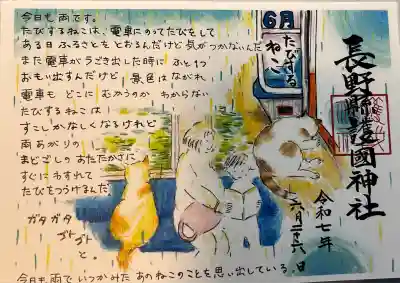 今日も雨です。
たびするねこは、電車にのってたびをして
ある日ふるさとをとおるんだけど気がつかないんだ
また電車がうごき出した時に ふと1つ
おもい出すんだけど 景色はながれ
電車も どこに むかうのか わからない
たびするねこは
すこしかなしくなるけれど
雨あがりの
まどごしの あたたかさに
すぐに わすれて
たびをつづけるんだ。
ガタガタ
ゴトゴト
と。
今日も雨で いつかみた あのねこのことを 思い出している。
6月
たびする
ねこ
長野縣護國神社
令和七年
六月二十六日